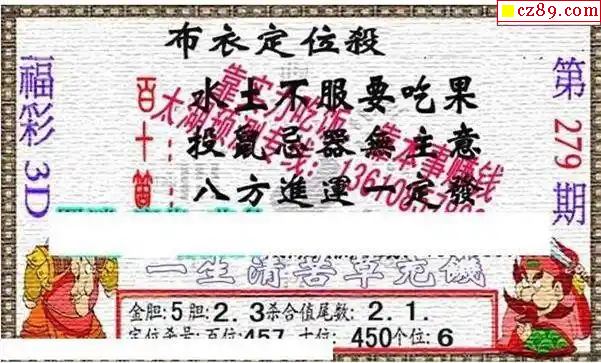 cz89.com
布衣定位殺
福彩3D
第279期
百：水土不服要吃果
十：投鼠忌器無主意
個：八方進運一定發
靠实力吃饭 靠本事赚钱
一生清苦草充饑
金胆:5胆:2.3杀合值尾数:2.1.
定位杀号:百位:457 十位:450个位:6